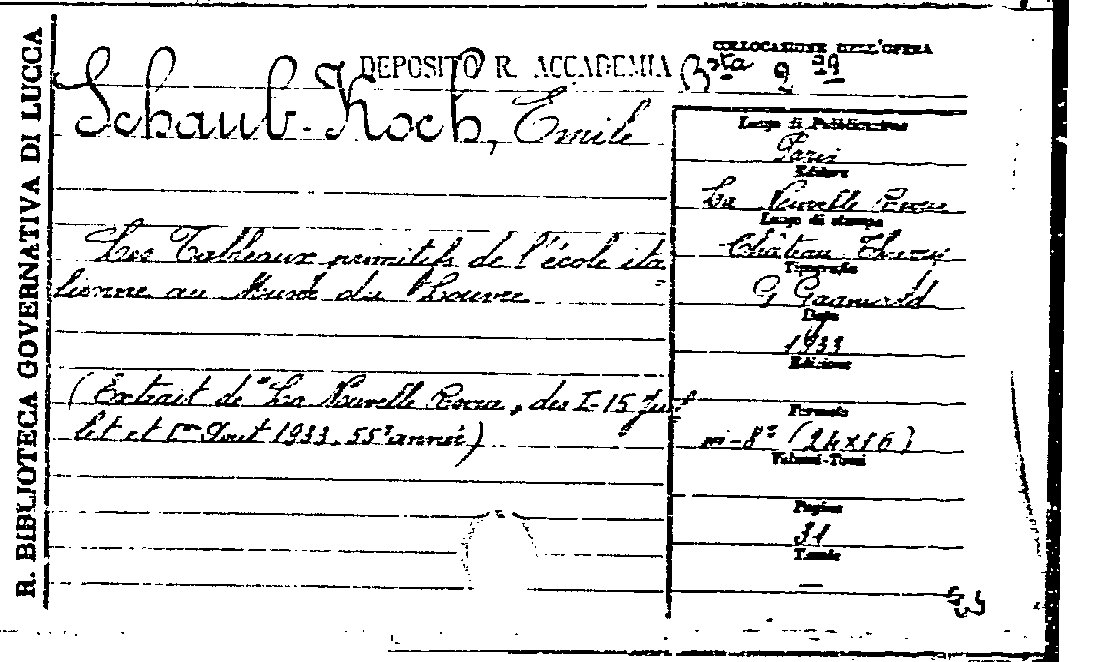 R. BIBLIOTECA GOVERNATIVA DI LUCCA
DEPOSITO R. ACCADEMIA
COLLOCAZIONE DELL'OPERA
Bsta 9 29
Schaub-Koch, Emile
Les Tableaux primitifs de l'école ita
lienne au Musé du Louvre
(Extrait de "La Nouvelle Revue, des I-15 Juil
let et 1er Aout 1933. 55e année)
Luogo di Pubblicazione
Paris
Editore
La Nouvelle Revue
Luogo di stampa
Château Thierry
Tipografia
G
Data
1933
Edizione
Formato
in-8° (24x16)
Volumi-Tomi
Pagine
31
Tavole
—